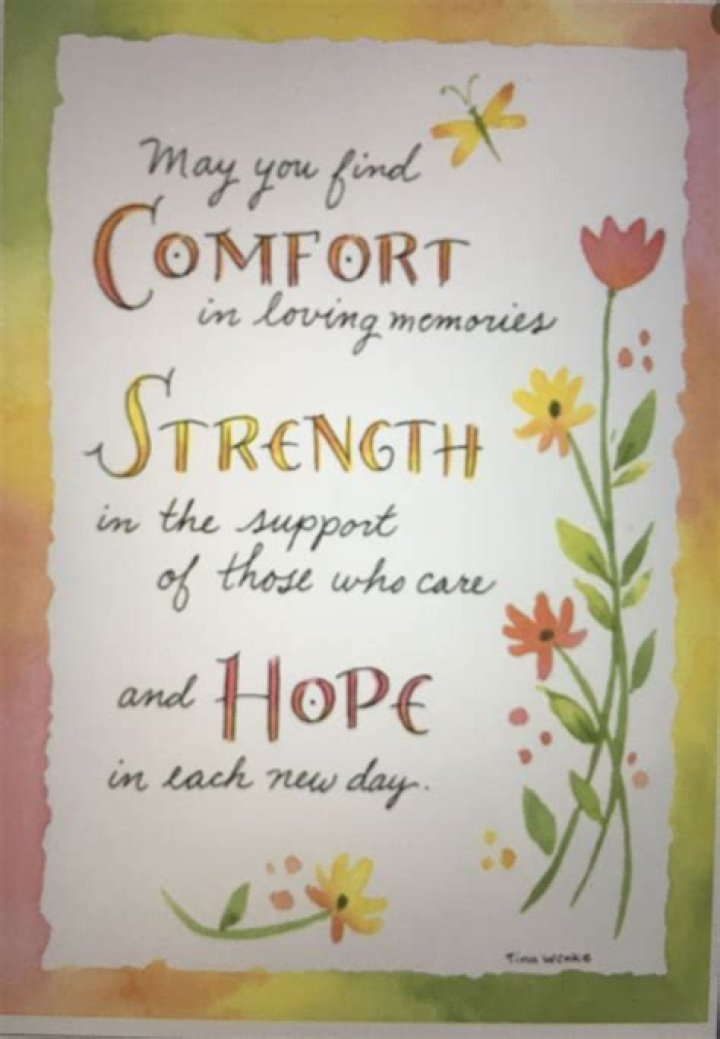 May you find
COMFORT
in loving memories
STRENGTH
in the support
of those who care
and HOPE
in each new day.
Tina